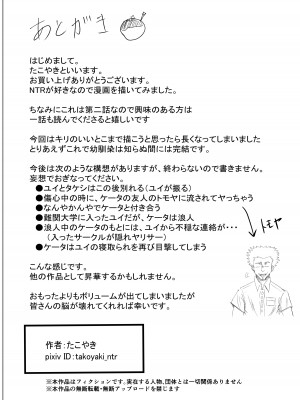 あとがき
はじめまして。
たこやきといいます。
お買い上げありがとうございます。
NTRが好きなので漫画を描いてみました。
ちなみにこれは第二話なので興味のある方は
一話も読んでくださると嬉しいです
今回はキリのいいとこまで描こうと思ったら長くなってしまいました
とりあえずこれで幼馴染は知らぬ間には完結です。
今後は次のような構想がありますが、終わらないので書きません。
妄想でおぎなってください。
●ユイとタケシはこの後別れる(ユイが振る)
●傷心中の時に、ケータの友人のトモヤに流されてヤッちゃう
●なんやかんやでケータと付き合う
●難関大学に入ったユイだが、ケータは浪人
●浪人中のケータのもとには、ユイから不穏な連絡が・・・
(入ったサークルが隠れヤリサー)
●ケータはユイの寝取られを再び目撃してしまう
トモヤ
こんな感じです。
他の作品として昇華するかもしれません。
おもったよりもボリュームが出てしまいましたが
皆さんの脳が壊れてくれれば幸いです。
作者:たこやき
pixiv ID:takoyaki_ntr
※本作品はフィクションです。実在する人物、団体とは一切関係ありません
※本作品の無断転載・無断アップロードを禁じます